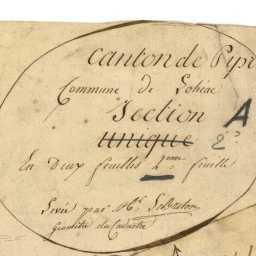 Canton de Pipr
Commune de Lohéac
Section A
unique 2º
En Deux feuilles 2eme feuille
Levée par Mr
Géomètre du Cadastre